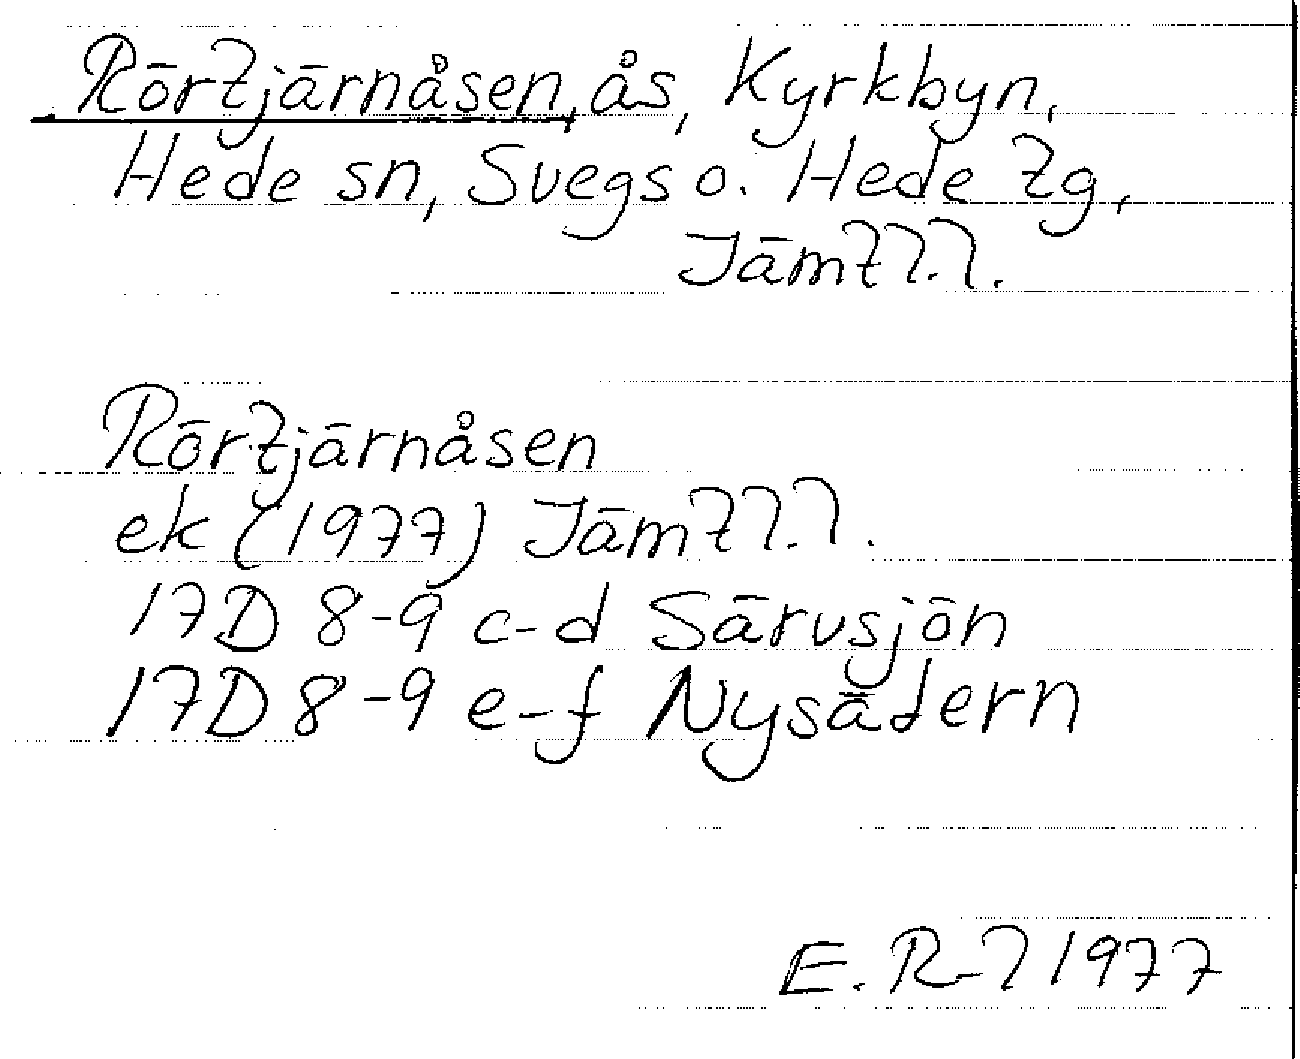 Rörtjärnåsen, ås, Kyrkbyn,
Hede sn, Svegs o. Hede tg,
Jämtl.l.
Rörtjärnåsen
ek (1977) Jämtl.l.
17D 8-9 c-d Särvsjön
17D 8-9 e-f Nysätern
E. R-l 1977